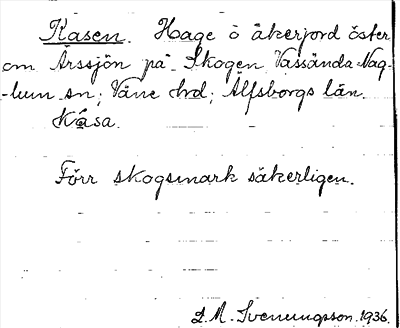 Kasen. Hage o åkerjord öster
om Årssjön på Skogen Vassända-Nag-
-lum sn; Väne hrd; Älfsborgs län.
Kåsa.
Förr skogsmark säkerligen.
L. M. Svenungsson. 1936.